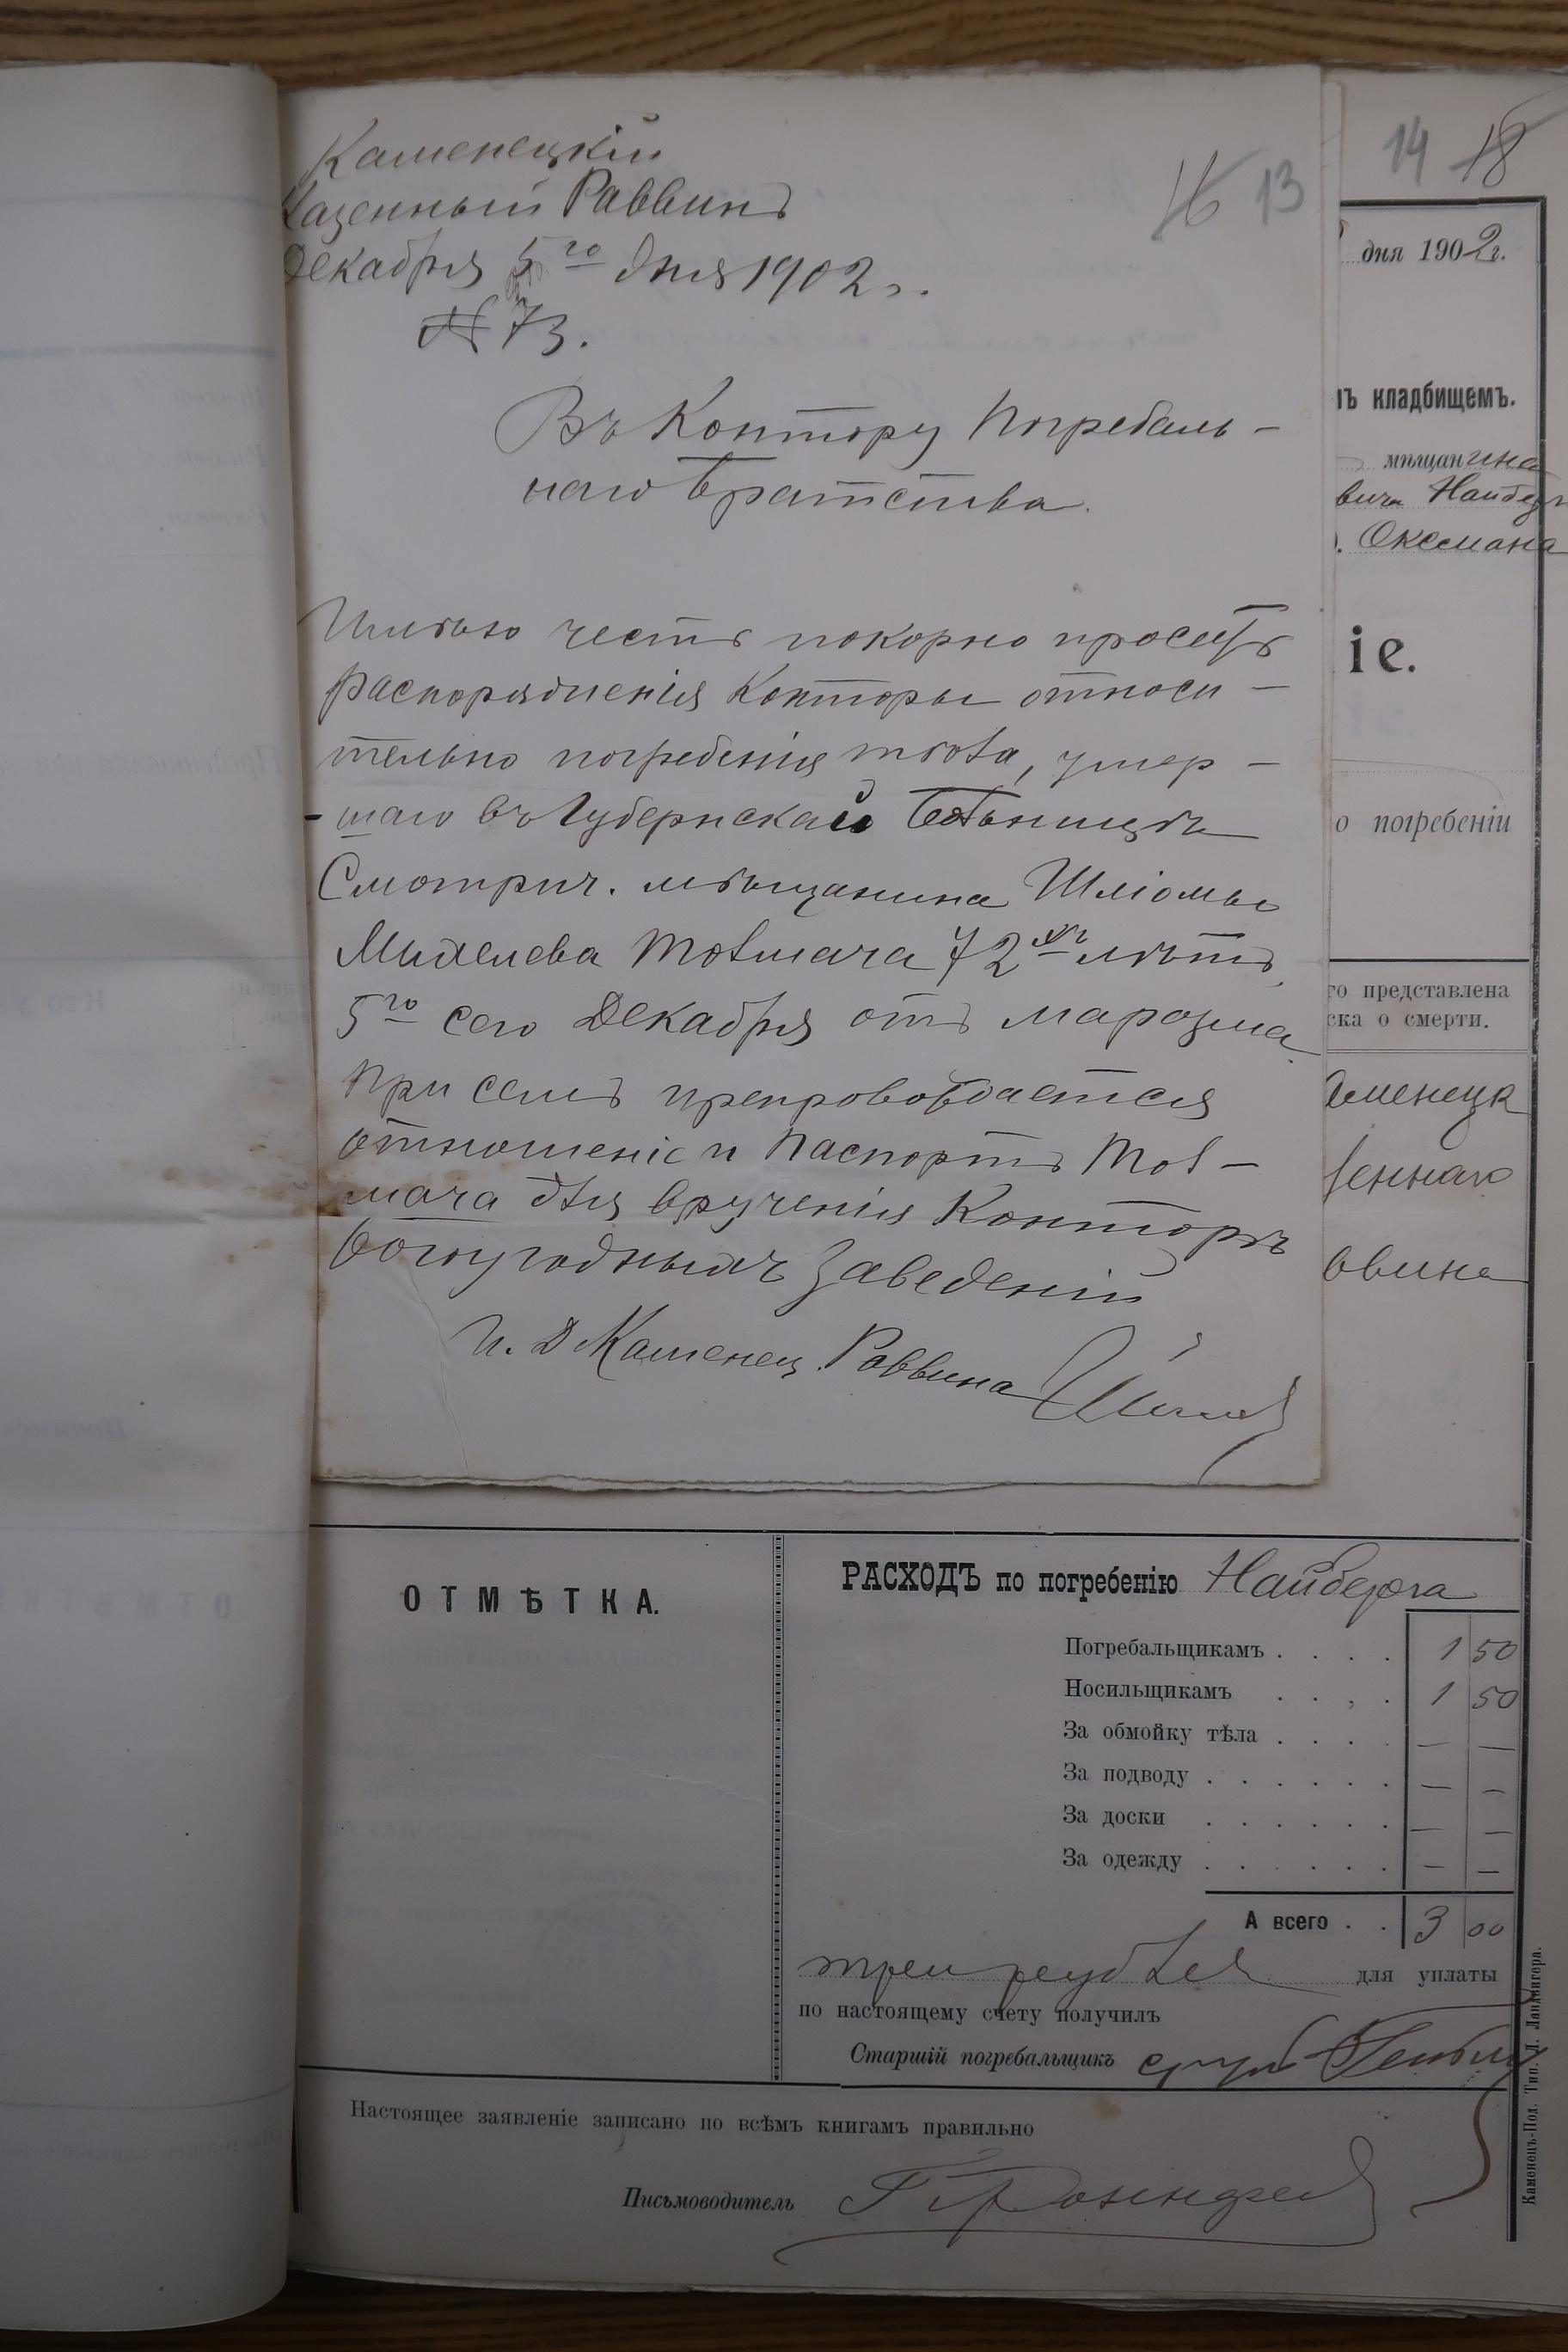 Каменецкій
Казенный Раввинъ
Декабря 5го дня 1902 г.
№ 73.
16 13
Въ Контору Погребаль-
наго Братства.
Имѣю честь покорно просить
распоряженія Конторы относи-
тельно погребенія тѣла, умер-
-шаго въ Губернской Больницѣ
Смотрич. мѣщанина Шліомы
Михелева Толмача 72хъ лѣтъ,
5го сего Декабря отъ маразма.
При семъ препровождается
отношеніе и паспортъ Тол-
мача для врученія Конторѣ
богоугодныхъ заведеній
И. Д. Каменец. Раввина
14 18
дня 1902 г.
мъ кладбищемъ.
мѣщанина
вича Найберг
. Оксмана
іе.
о погребеніи
го представлена
ска о смерти.
аменецк
зеннаго
ввина
ОТМѢТКА.
РАСХОДЪ по погребенію Найберга
Погребальщикамъ . . . . 1 50
Носильщикамъ . . , . 1 50
За обмойку тѣла . . . . — —
За подводу . . . . . . — —
За доски . . . . . . — —
За одежду . . . . . . — —
А всего . . 3 00
три рубля для уплаты
по настоящему счету получилъ
Старшій погребальщикъ
Настоящее заявленіе записано по всѣмъ книгамъ правильно
Письмоводитель
Каменецъ-Под. Тип. Л. Ландвигера.